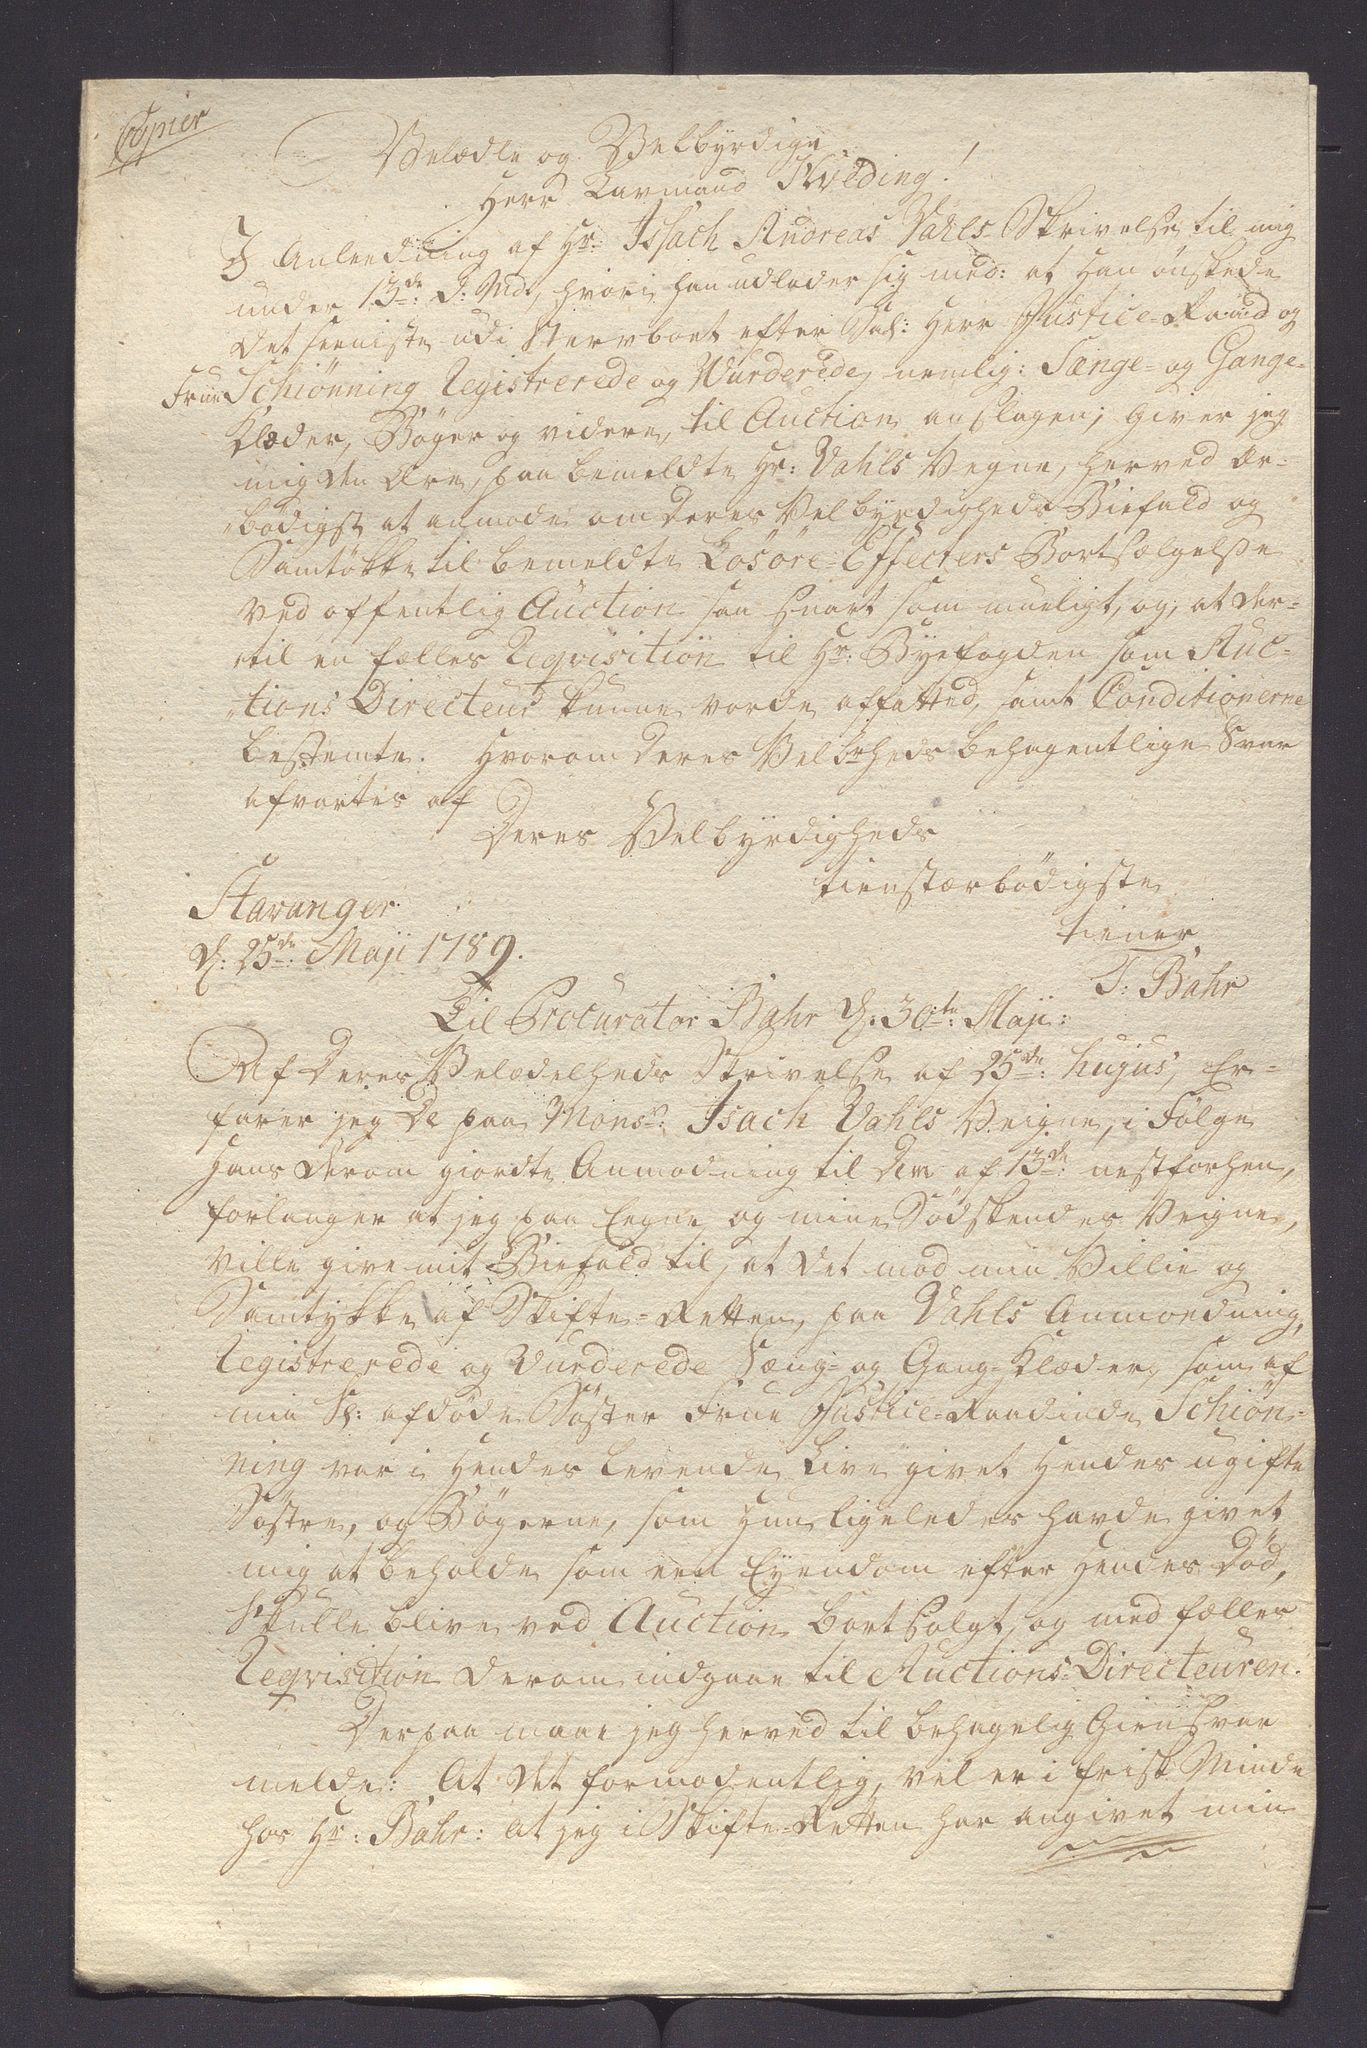 Copier
Velædle og Velbyrdige
Herr Lavmand Hvilding!
I Anleedning af Hr: Issach Andreas Vahls Skrivelse til mig
under 13de: D: Md:, hvori han udlader sig med: at han ønskede
det seeniste udi Stervboet efter Sal: Herr Justice-Raad og
Frue Schiønning Registrerede og Vurderede, nemlig: Sænge- og Gange-
Klæder, Bøger og videre, til Auction anslagen; giver jeg
mig den Ære, paa bemeldte Hr: Vahls Vegne, herved ær-
bödigst at anmode om Deres Velbyrdigheds Biefald og
Samtökke til bemeldte Lösöre-Effecters Bortsælgelse
ved offentlig Auction saa snart som mueligt, og, at der-
til en fælles Reqvisition til Hr: Byefogden som Auc-
tions Directeur kunne vorde affatted, samt Conditionerne
bestemte. Hvorom Deres Velbrheds behagentlige Svar
afvartes af
Deres Velbyrdigheds
tienstærbödigste
tiener
Stavanger
d: 25de: Maji 1789.
T: Bahr
Til Procurator Bahr d: 30te: Maji:
Af Deres Velædelheds Skrivelse af 25de: hujus, er-
farer jeg De paa Monsr: Isach Vahls Veigne, i Følge
hans derom giordte Anmodning til Dem af 13de: nestforhen,
forlanger at jeg paa Eegne og mine Södskendes Veigne,
ville give mit Biefald til, at det mod min Villie og
Samtykke af Skifte-Retten, paa Vahls Anmoedning,
Registrerede og Vurderede Sæng- og Gang-Klæder, som af
min Sl: afdöde Söster Frue Justice-Raadinde Schiøn-
ning var i Hendes Levende Live givet Hendes ugifte
Söstre, og Bögerne, som Hun ligeledes havde givet
mig at beholde som een Eyendom efter Hendes Död,
skulle blive ved Auction bortsolgt, og med fælles
Reqvisition derom indgaae til Auctions-Directeuren.
Derpaa maae jeg herved til behagelig Giensvar
melde: At det formodentlig, vel er i frisk Minde
hos Hr: Bahr: at jeg i Skifte-Retten har angivet min